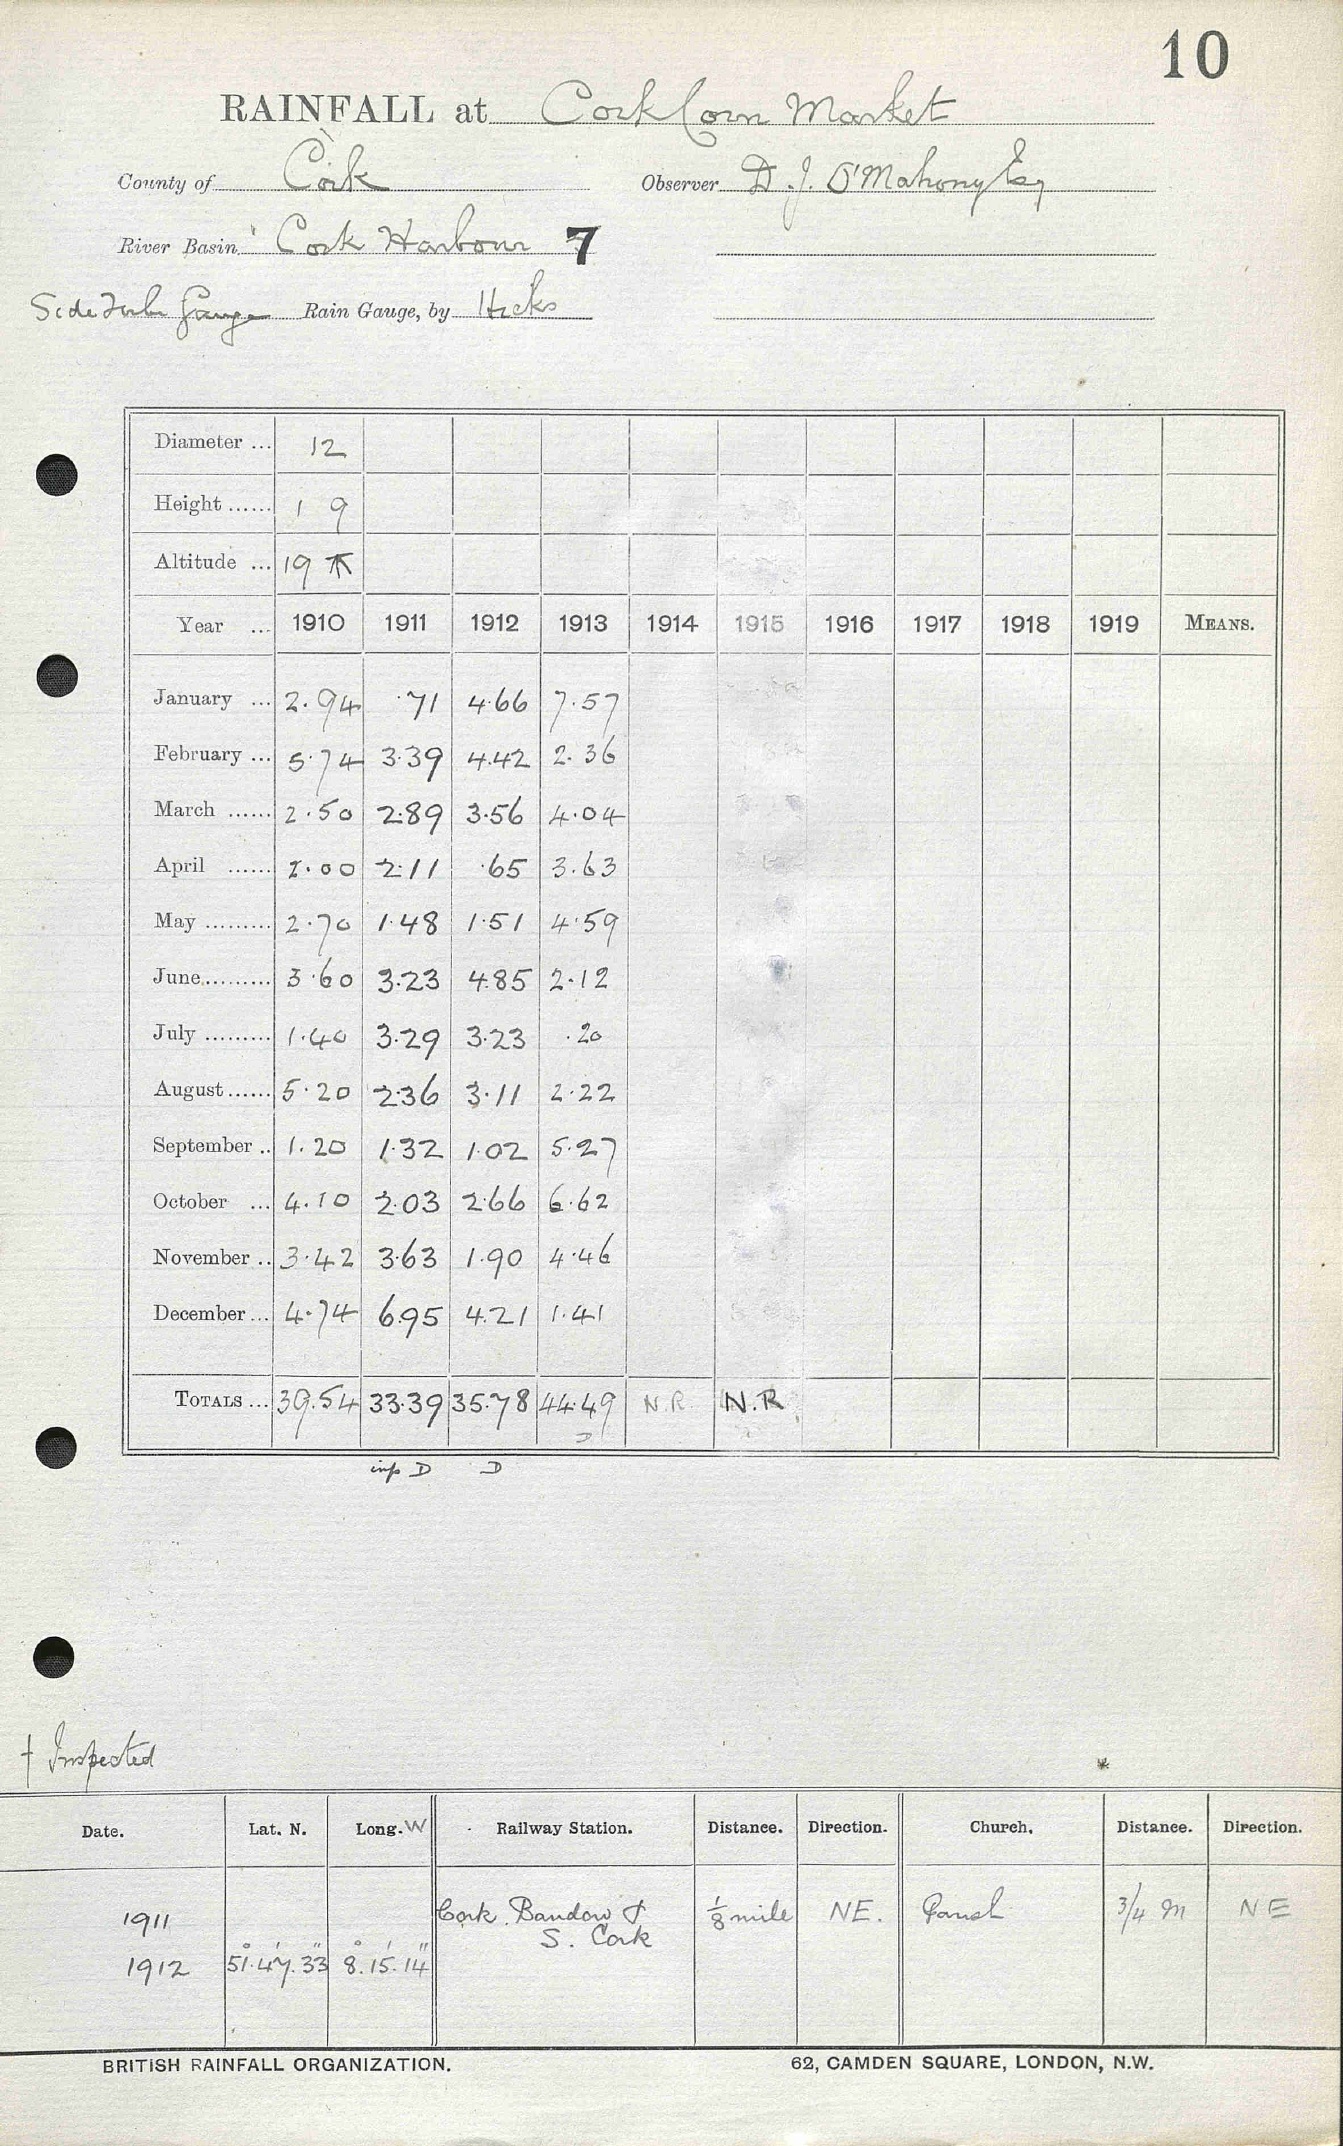 10
RAINFALL at Cork Corn Market
County of Cork Observer D. J. O'Mahony Esq
River Basin Cork Harbour 7
Side Tube Gauge Rain Gauge, by Hicks
Diameter ... 12
Height ...... 1 9
Altitude ... 19
Year ... 1910 1911 1912 1913 1914 1915 1916 1917 1918 1919 MEANS.
January ... 2.94 .71 4.66 7.57
February ... 5.74 3.39 4.42 2.36
March ...... 2.50 2.89 3.56 4.04
April ...... 2.00 2.11 .65 3.63
May ......... 2.70 1.48 1.51 4.59
June......... 3.60 3.23 4.85 2.12
July ......... 1.40 3.29 3.23 .20
August...... 5.20 2.36 3.11 2.22
September .. 1.20 1.32 1.02 5.27
October ... 4.10 2.03 2.66 6.62
November .. 3.42 3.63 1.90 4.46
December ... 4.74 6.95 4.21 1.41
TOTALS ... 39.54 33.39 35.78 44.49 N.R. N.R.
D
D D
† Inspected
Date. Lat. N. Long. W Railway Station. Distance. Direction. Church. Distance. Direction.
1911 Cork Bandon & 1/8 mile NE. Parish 3/4 m NE
S. Cork
1912 51° 47' 33" 8° 15' 14"
BRITISH RAINFALL ORGANIZATION. 62, CAMDEN SQUARE, LONDON, N.W.